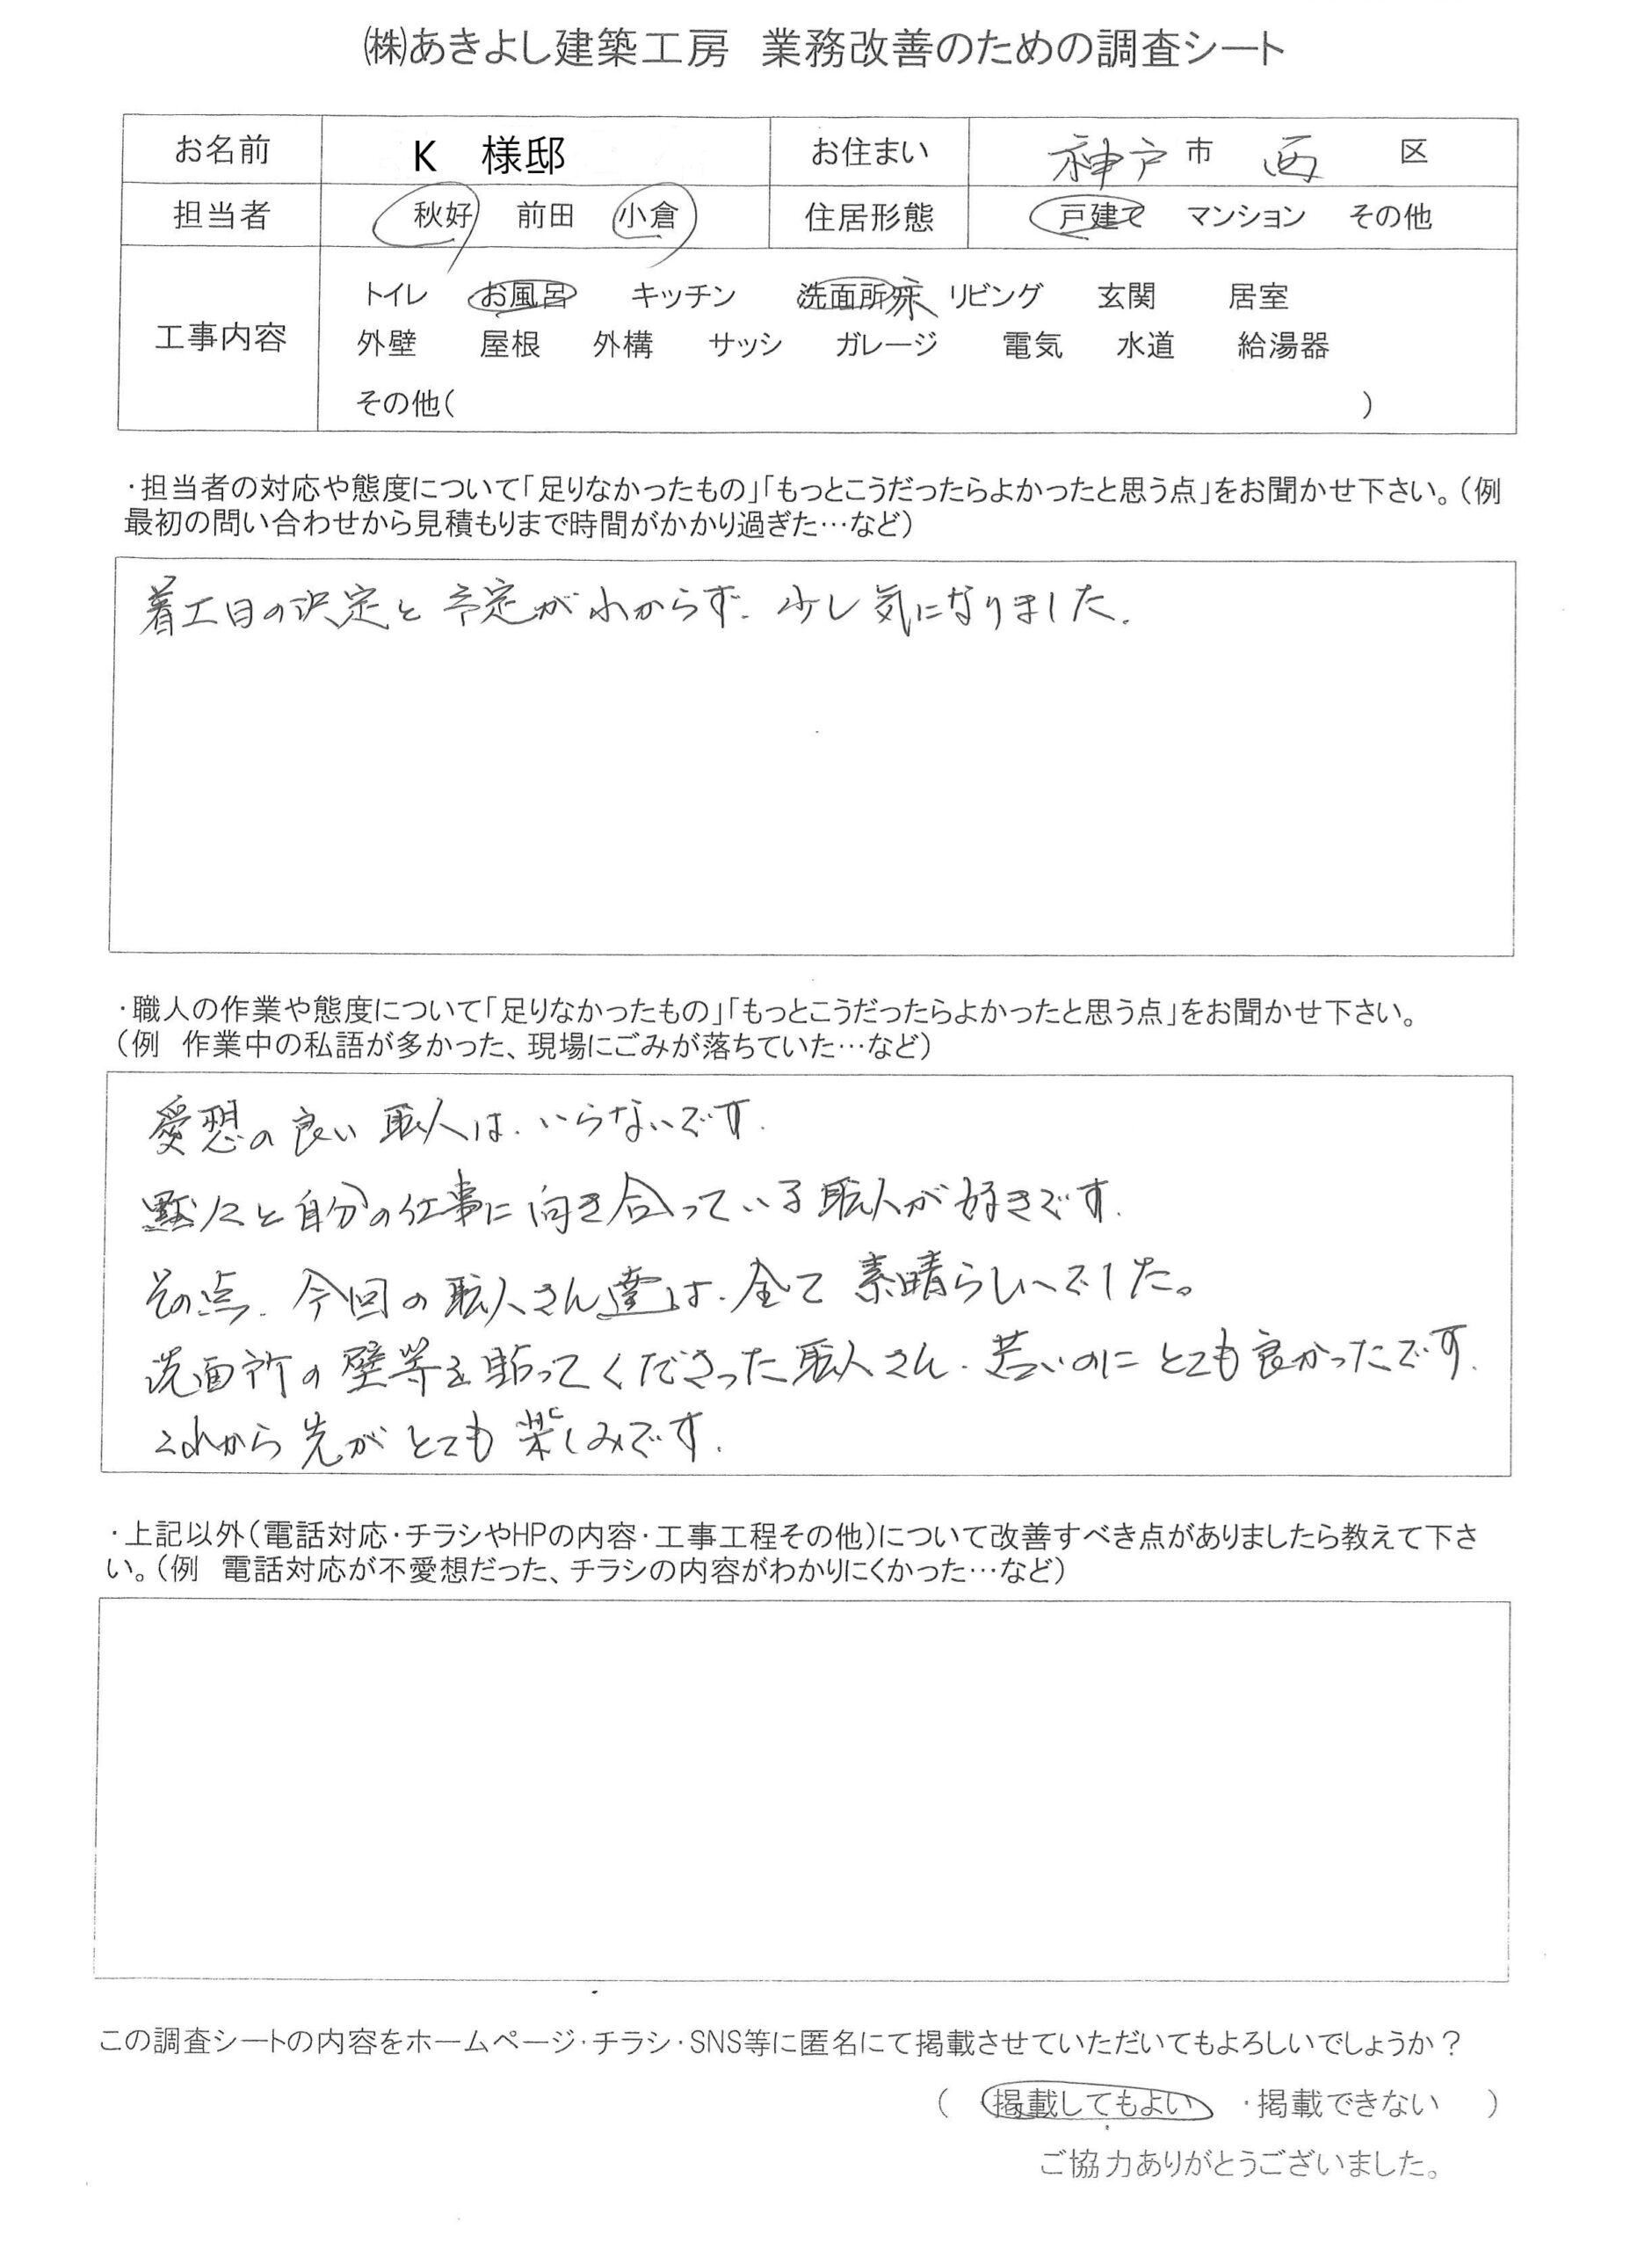 ㈱あきよし建築工房　業務改善のための調査シート
お名前　K　様邸　お住まい　神戸市　西　区
担当者　秋好　前田　小倉　住居形態　戸建て　マンション　その他
工事内容
トイレ　お風呂　キッチン　洗面所 床　リビング　玄関　居室
外壁　屋根　外構　サッシ　ガレージ　電気　水道　給湯器
その他(　　　)
・担当者の対応や態度について｢足りなかったもの｣｢もっとこうだったらよかったと思う点｣をお聞かせ下さい。(例
最初の問い合わせから見積もりまで時間がかかり過ぎた…など)
着工日の決定と予定がわからず、少し気になりました.
・職人の作業や態度について｢足りなかったもの｣｢もっとこうだったらよかったと思う点｣をお聞かせ下さい。
(例　作業中の私語が多かった、現場にごみが落ちていた…など)
愛想の良い職人は、いらないです.
黙々と自分の仕事に向き合っている職人が好きです.
その点、今回の職人さん達は、全て素晴らしいでした。
洗面所の壁等を貼ってくださった職人さん、若いのにとても良かったです.
これから先がとても楽しみです.
・上記以外(電話対応・チラシやHPの内容・工事工程その他)について改善すべき点がありましたら教えて下さ
い。(例　電話対応が不愛想だった、チラシの内容がわかりにくかった…など)
この調査シートの内容をホームページ・チラシ・SNS等に匿名にて掲載させていただいてもよろしいでしょうか？
(　掲載してもよい　・掲載できない　)
ご協力ありがとうございました。